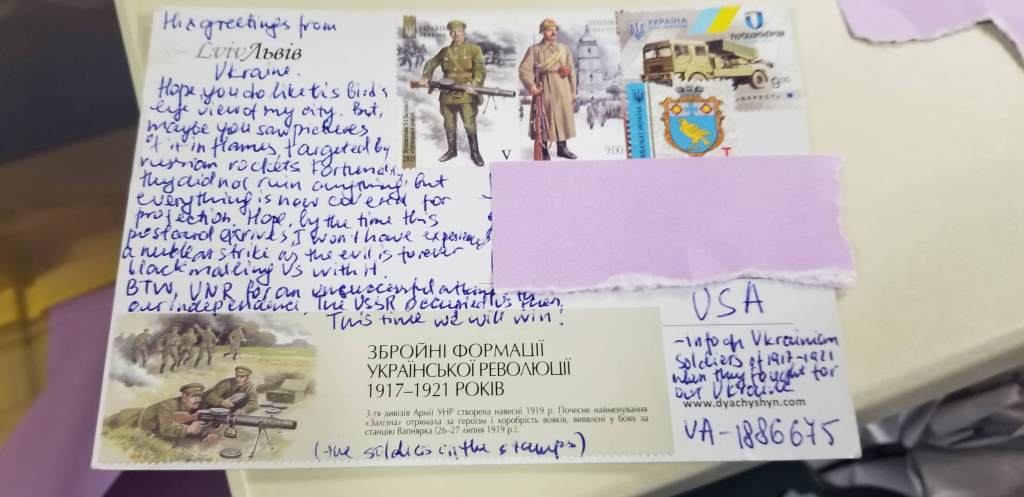 Hi & greetings from
Lviv Львів
Ukraine.
Hope, you do like this Bird's
eye view of my city. But,
maybe you saw pictures
of it in flames, targeted by
russian rockets. Fortunately
they did not ruin anything, but
everything is now covered for
protection. Hope, by the time this
postcard arrives, I won't have experienced
a nuclear strike as the evil is forever
blackmailing us with it.
BTW, UNR for an unsuccessful attempt
our independence. The USSR occupied us then.
This time we will win!
УКРАЇНА
UKRAINE
2021
V
9.00
УКРАЇНА
9.00
T
USA
ЗБРОЙНІ ФОРМАЦІЇ
УКРАЇНСЬКОЇ РЕВОЛЮЦІЇ
1917–1921 РОКІВ
3-тя дивізія Армії УНР створена навесні 1919 р. Почесне найменування
«Залізна» отримала за героїзм і хоробрість вояків, виявлені у боях за
станцію Вапнярка (26–27 липня 1919 р.).
(the soldiers in the stamps)
- info on Ukrainian
soldiers of 1917-1921
when they fought for
our Ukraine
www.dyachyshyn.com
UA-1886675